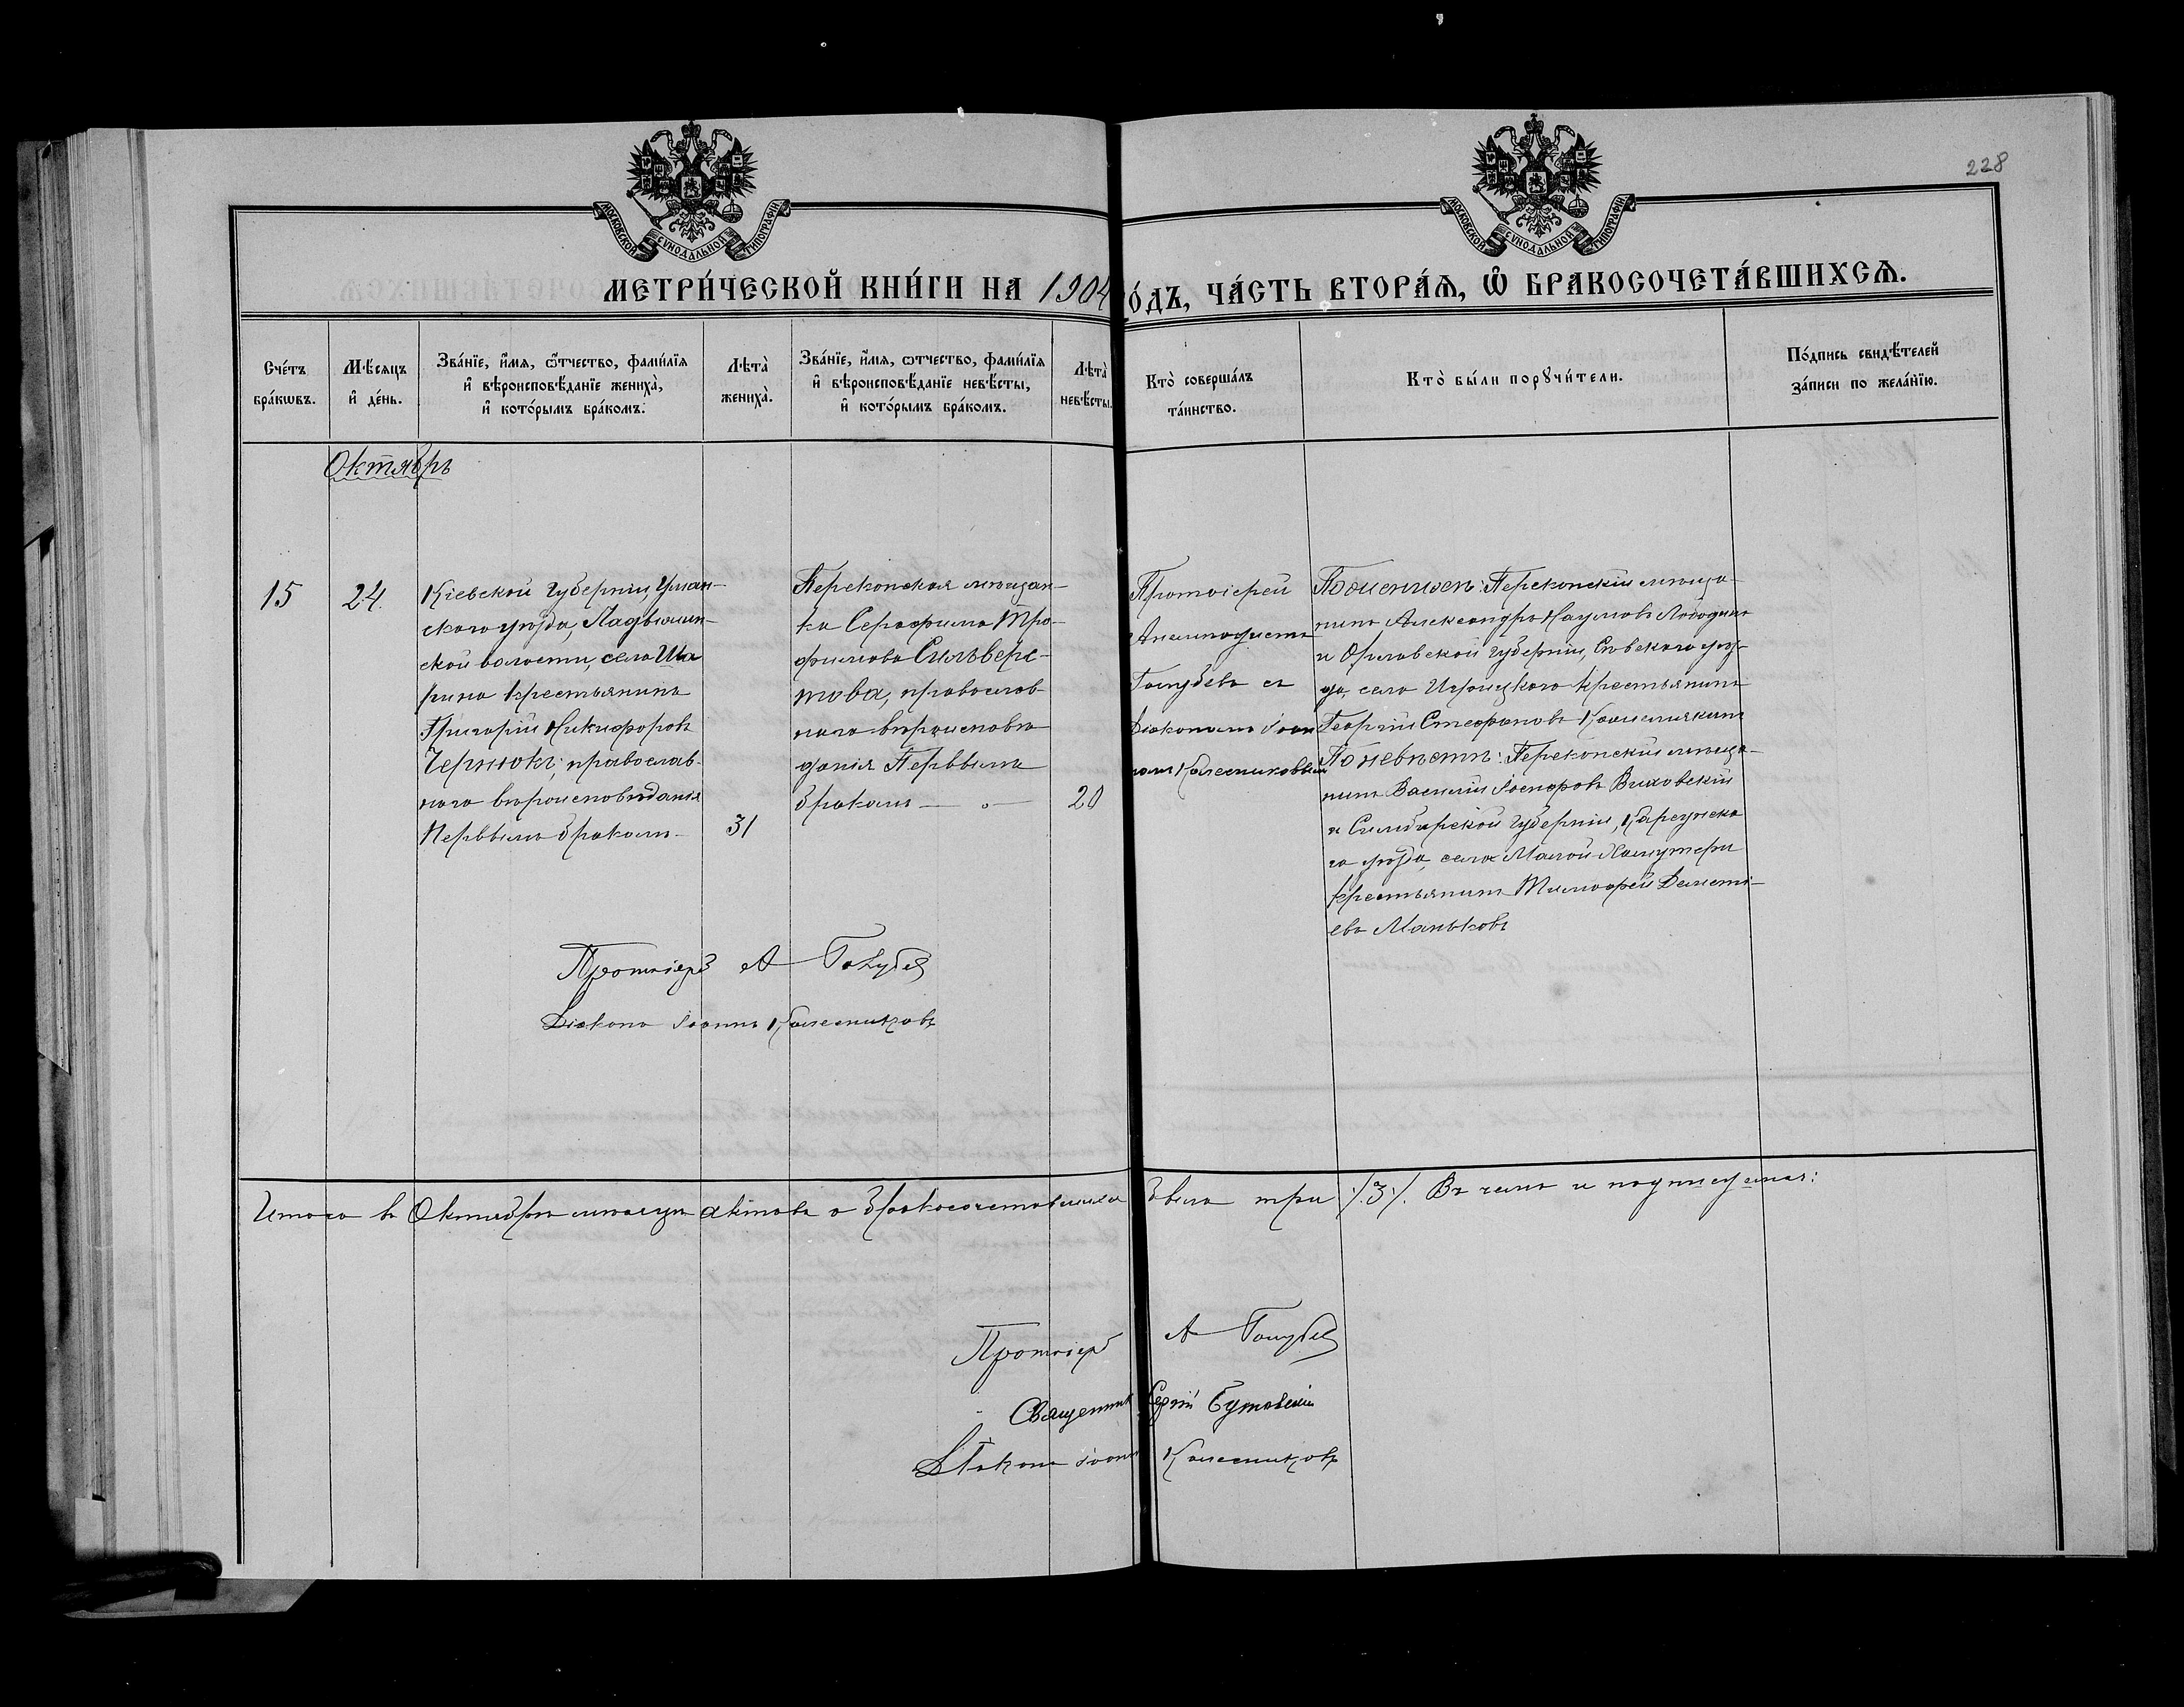 228
МОСКОВСКОЙ СѴНОДАЛЬНОЙ ТИПОГРАФІИ
МОСКОВСКОЙ СѴНОДАЛЬНОЙ ТИПОГРАФІИ
МЕТРИ́ЧЕСКОЙ КНИ́ГИ НА 1904 ГО́ДЪ, ЧА́СТЬ ВТОРА́Ѧ, Ѽ БРАКОСОЧЕТА́ВШИХСѦ.
Сче́тъ
бра́кѡвъ.
Мѣ́сяцъ
и҆ де́нь.
Зва́нїе, и҆́мя, ѻ҆́тчество, фами́лїя
и҆ вѣроисповѣ́данїе жениха̀,
и҆ кото́рымъ бра́комъ.
Лѣта̀
жениха̀.
Зва́нїе, и҆́мя, ѻтчество, фами́лїя
и҆ вѣроисповѣ́данїе невѣ́сты,
и҆ кото́рымъ бра́комъ.
Лѣта̀
невѣ́сты.
Кто̀ соверша́лъ
та́инство.
Кто̀ бы́ли порꙋчи́тели.
По́дпись свидѣ́телей
за́писи по жела́нїю.
Октябрь
15
24.
Кіевской губерніи, Уман-
скаго уѣзда, Ладыжин-
ской волости, села Ша
рина крестьянинъ
Григорій Никифоровъ
Чернюкъ, православ-
наго вѣроисповѣданія
Первымъ бракомъ
31
Перекопская мѣщан-
ка Серафима Тро-
фимова Сильверс-
това, православ-
наго вѣроисповѣ
данія Первымъ
бракомъ
20
Протоіерей
Голубевъ съ
Діакономъ Іоан
номъ Колесниковымъ
По женихѣ: Перекопскій мѣща-
нинъ Александръ Наумовъ
и Орловской губерніи, Сѣвскаго уѣз-
да, села Игрицкаго крестьянинъ
Георгій Стефановъ
По невѣстѣ: Перекопскій мѣща-
нинъ Василій
и Симбирской губерніи, Карсунска
го уѣзда, села Малой
крестьянинъ Тимофей
евъ Маньковъ
Протоіерей А Голубев
Діаконъ Іоаннъ Колесниковъ
Итого въ Октябрѣ мѣсяцѣ актовъ о бракосочетавшихся было три /.3./. Въ чемъ и подписуемся:
Протоіерей А Голубев
Священникъ Сергій Бутовскій
Діаконъ Іоаннъ Колесниковъ